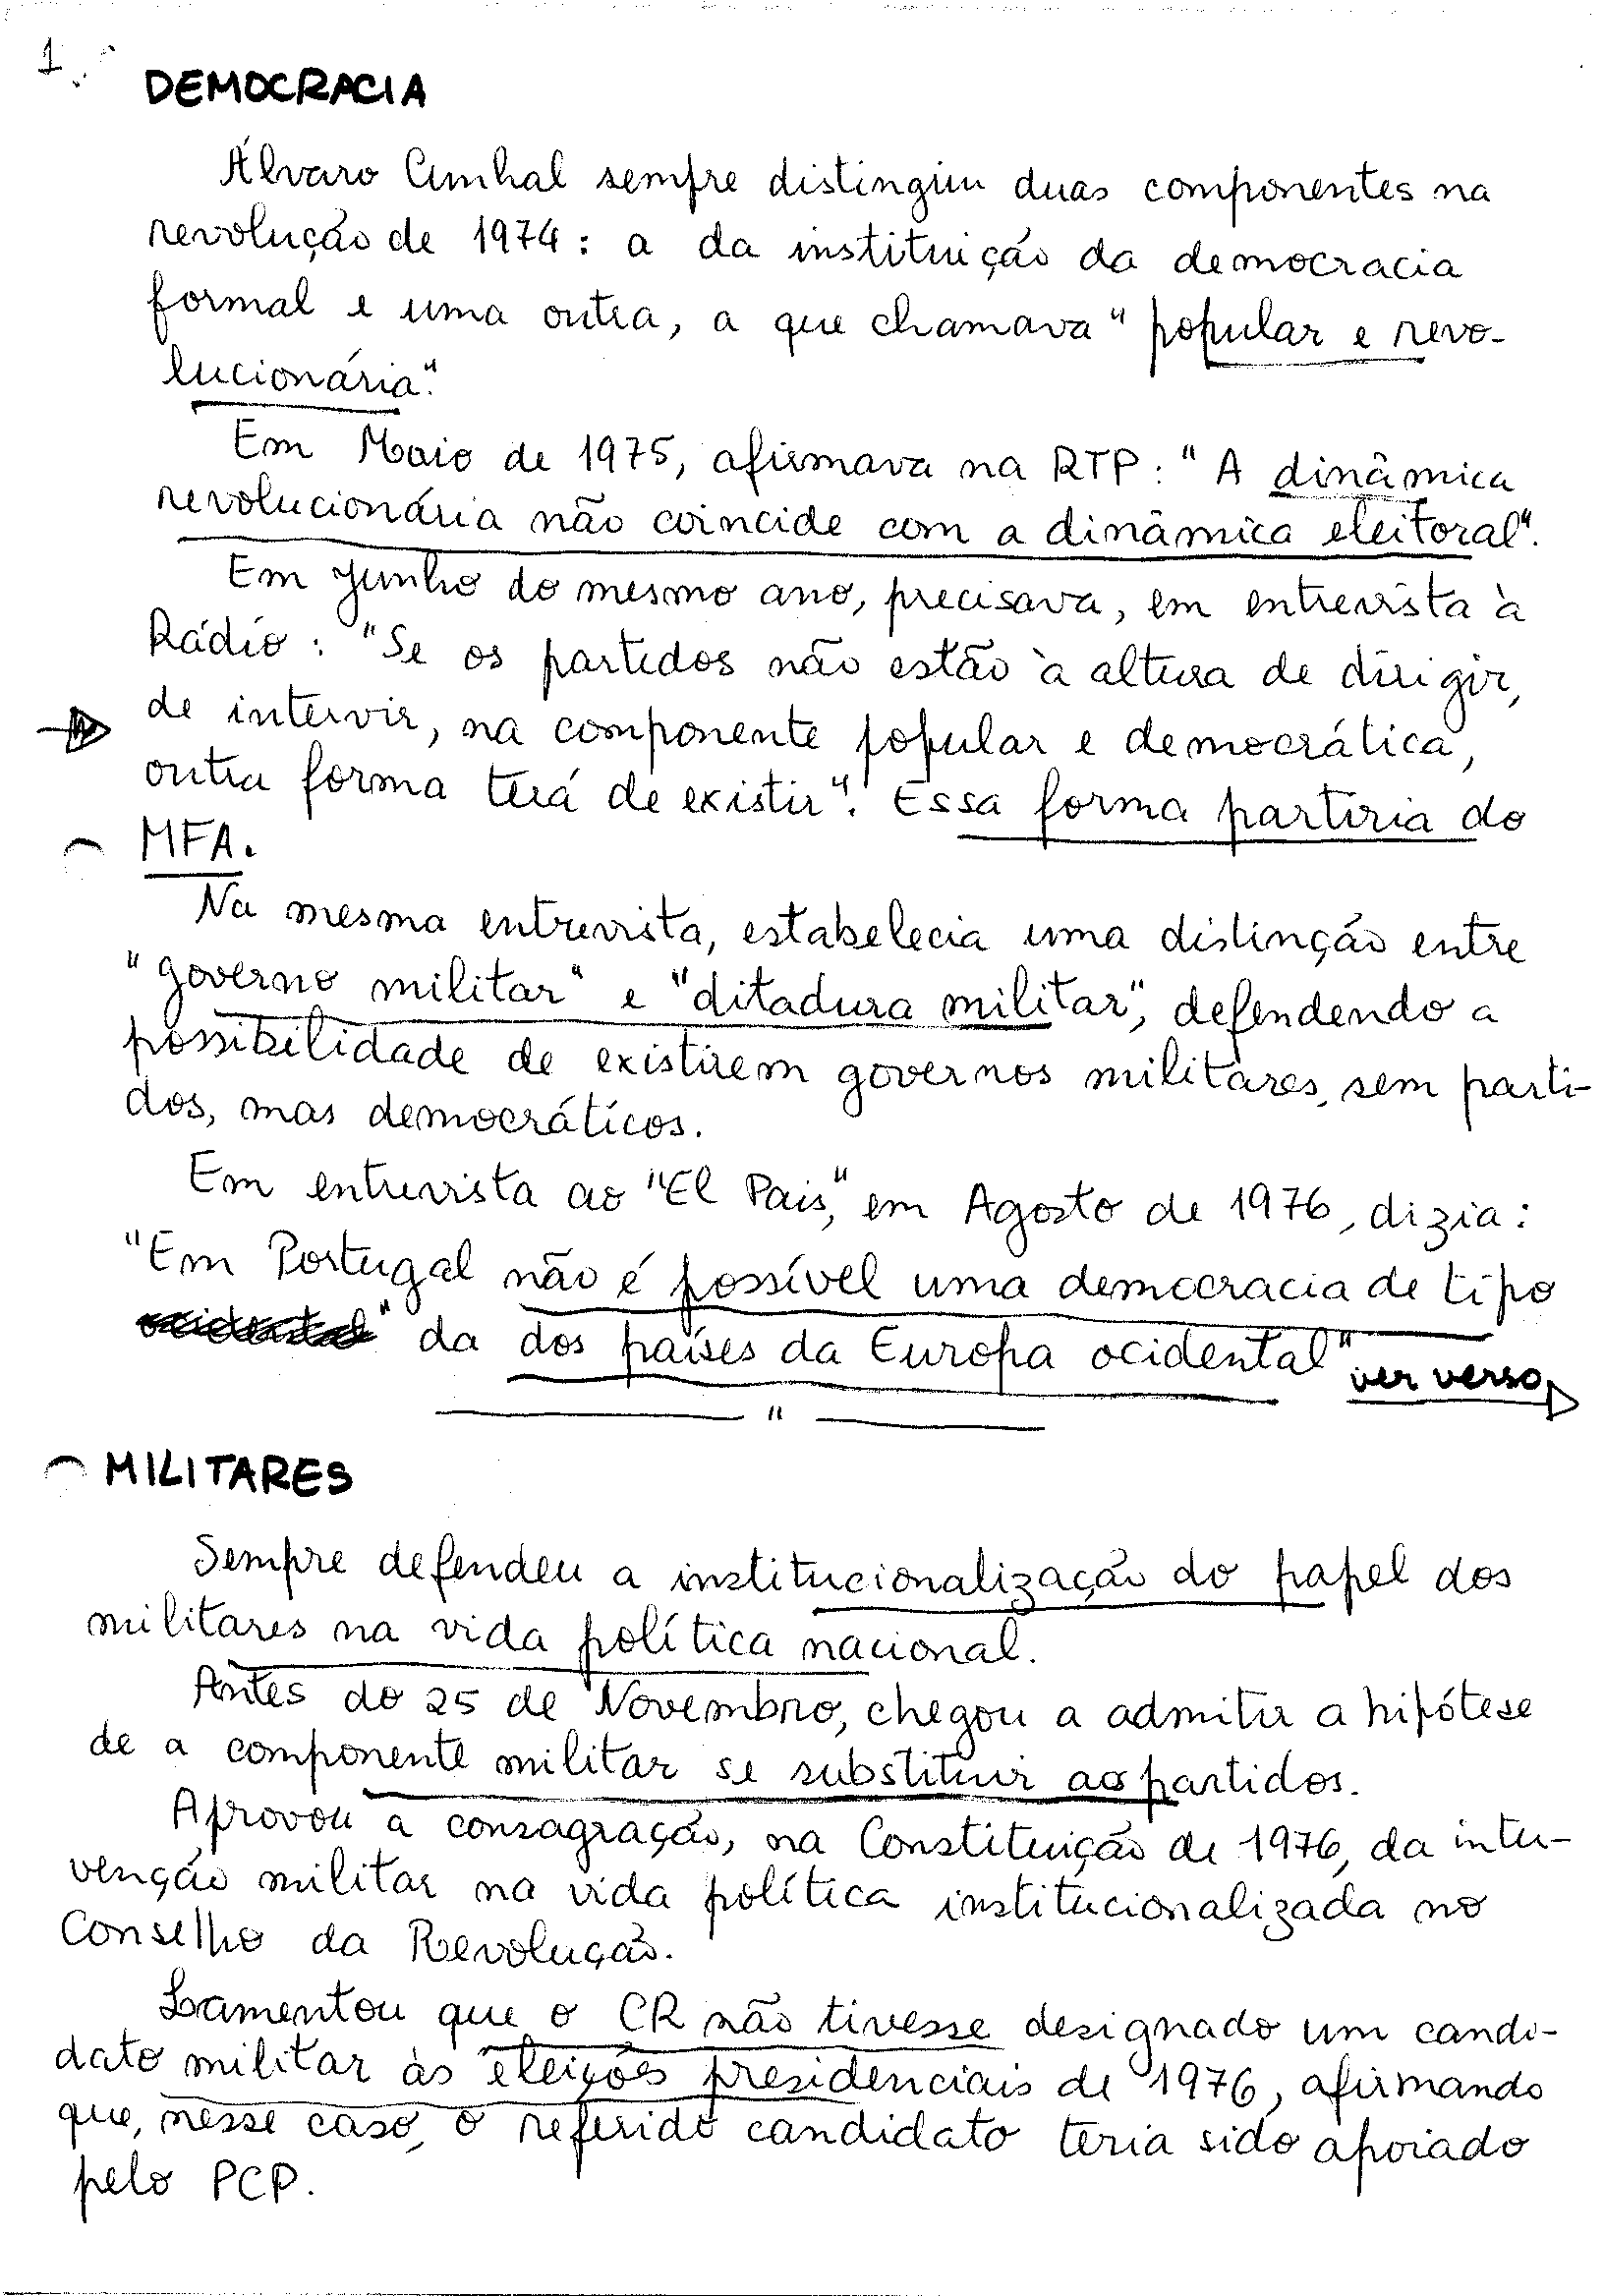 1.
DEMOCRACIA
Álvaro Cunhal sempre distinguiu duas componentes na
revolução de 1974: a da instituição da democracia
formal e uma outra, a que chamava "popular e revo-
lucionária".
Em Maio de 1975, afirmava na RTP: "A dinâmica
revolucionária não coincide com a dinâmica eleitoral".
Em Junho do mesmo ano, precisava, em entrevista à
Rádio: "Se os partidos não estão à altura de dirigir,
de intervir, na componente popular e democrática,
outra forma terá de existir". Essa forma partiria do
MFA.
Na mesma entrevista, estabelecia uma distinção entre
"governo militar" e "ditadura militar", defendendo a
possibilidade de existirem governos militares, sem parti-
dos, mas democráticos.
Em entrevista ao "El Pais", em Agosto de 1976, dizia:
"Em Portugal não é possível uma democracia de tipo
ocidental" da dos países da Europa ocidental" ver verso
"
MILITARES
Sempre defendeu a institucionalização do papel dos
militares na vida política nacional.
Antes do 25 de Novembro, chegou a admitir a hipótese
de a componente militar se substituir aos partidos.
Aprovou a consagração, na Constituição de 1976, da inter-
venção militar na vida política institucionalizada no
Conselho da Revolução.
Lamentou que o CR não tivesse designado um candi-
dato militar às eleições presidenciais de 1976, afirmando
que, nesse caso, o referido candidato teria sido apoiado
pelo PCP.